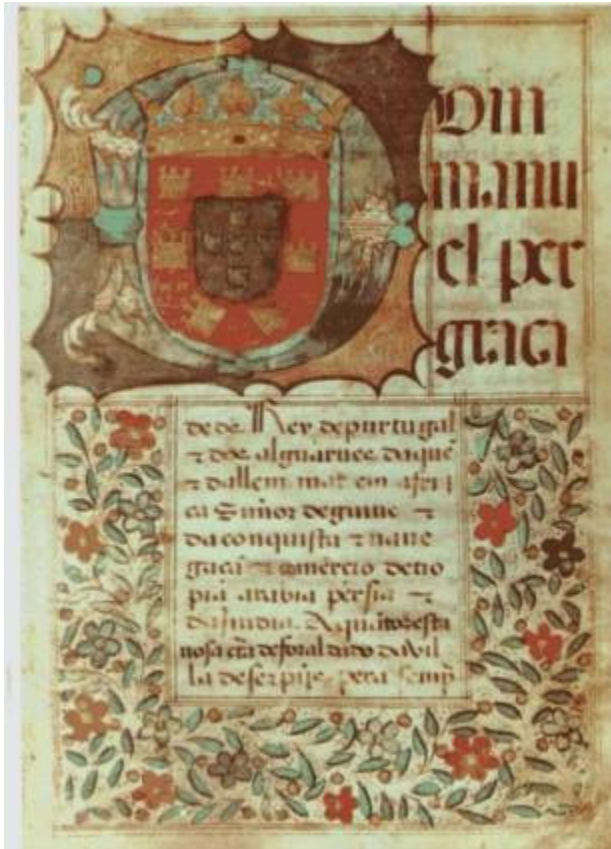 Dom
manu
el per
graca
de dẽ Rey de purtugal
⁊ dos alguarues daquẽ
⁊ dallem mar em afri
ca Sñor de guine ⁊
da conquista ⁊ naue
gaçã ⁊ comercio detio
pia arabia persia ⁊
da india. A quãtos esta
nosa cta de foral dado da vil
la de serpa pera semp̃